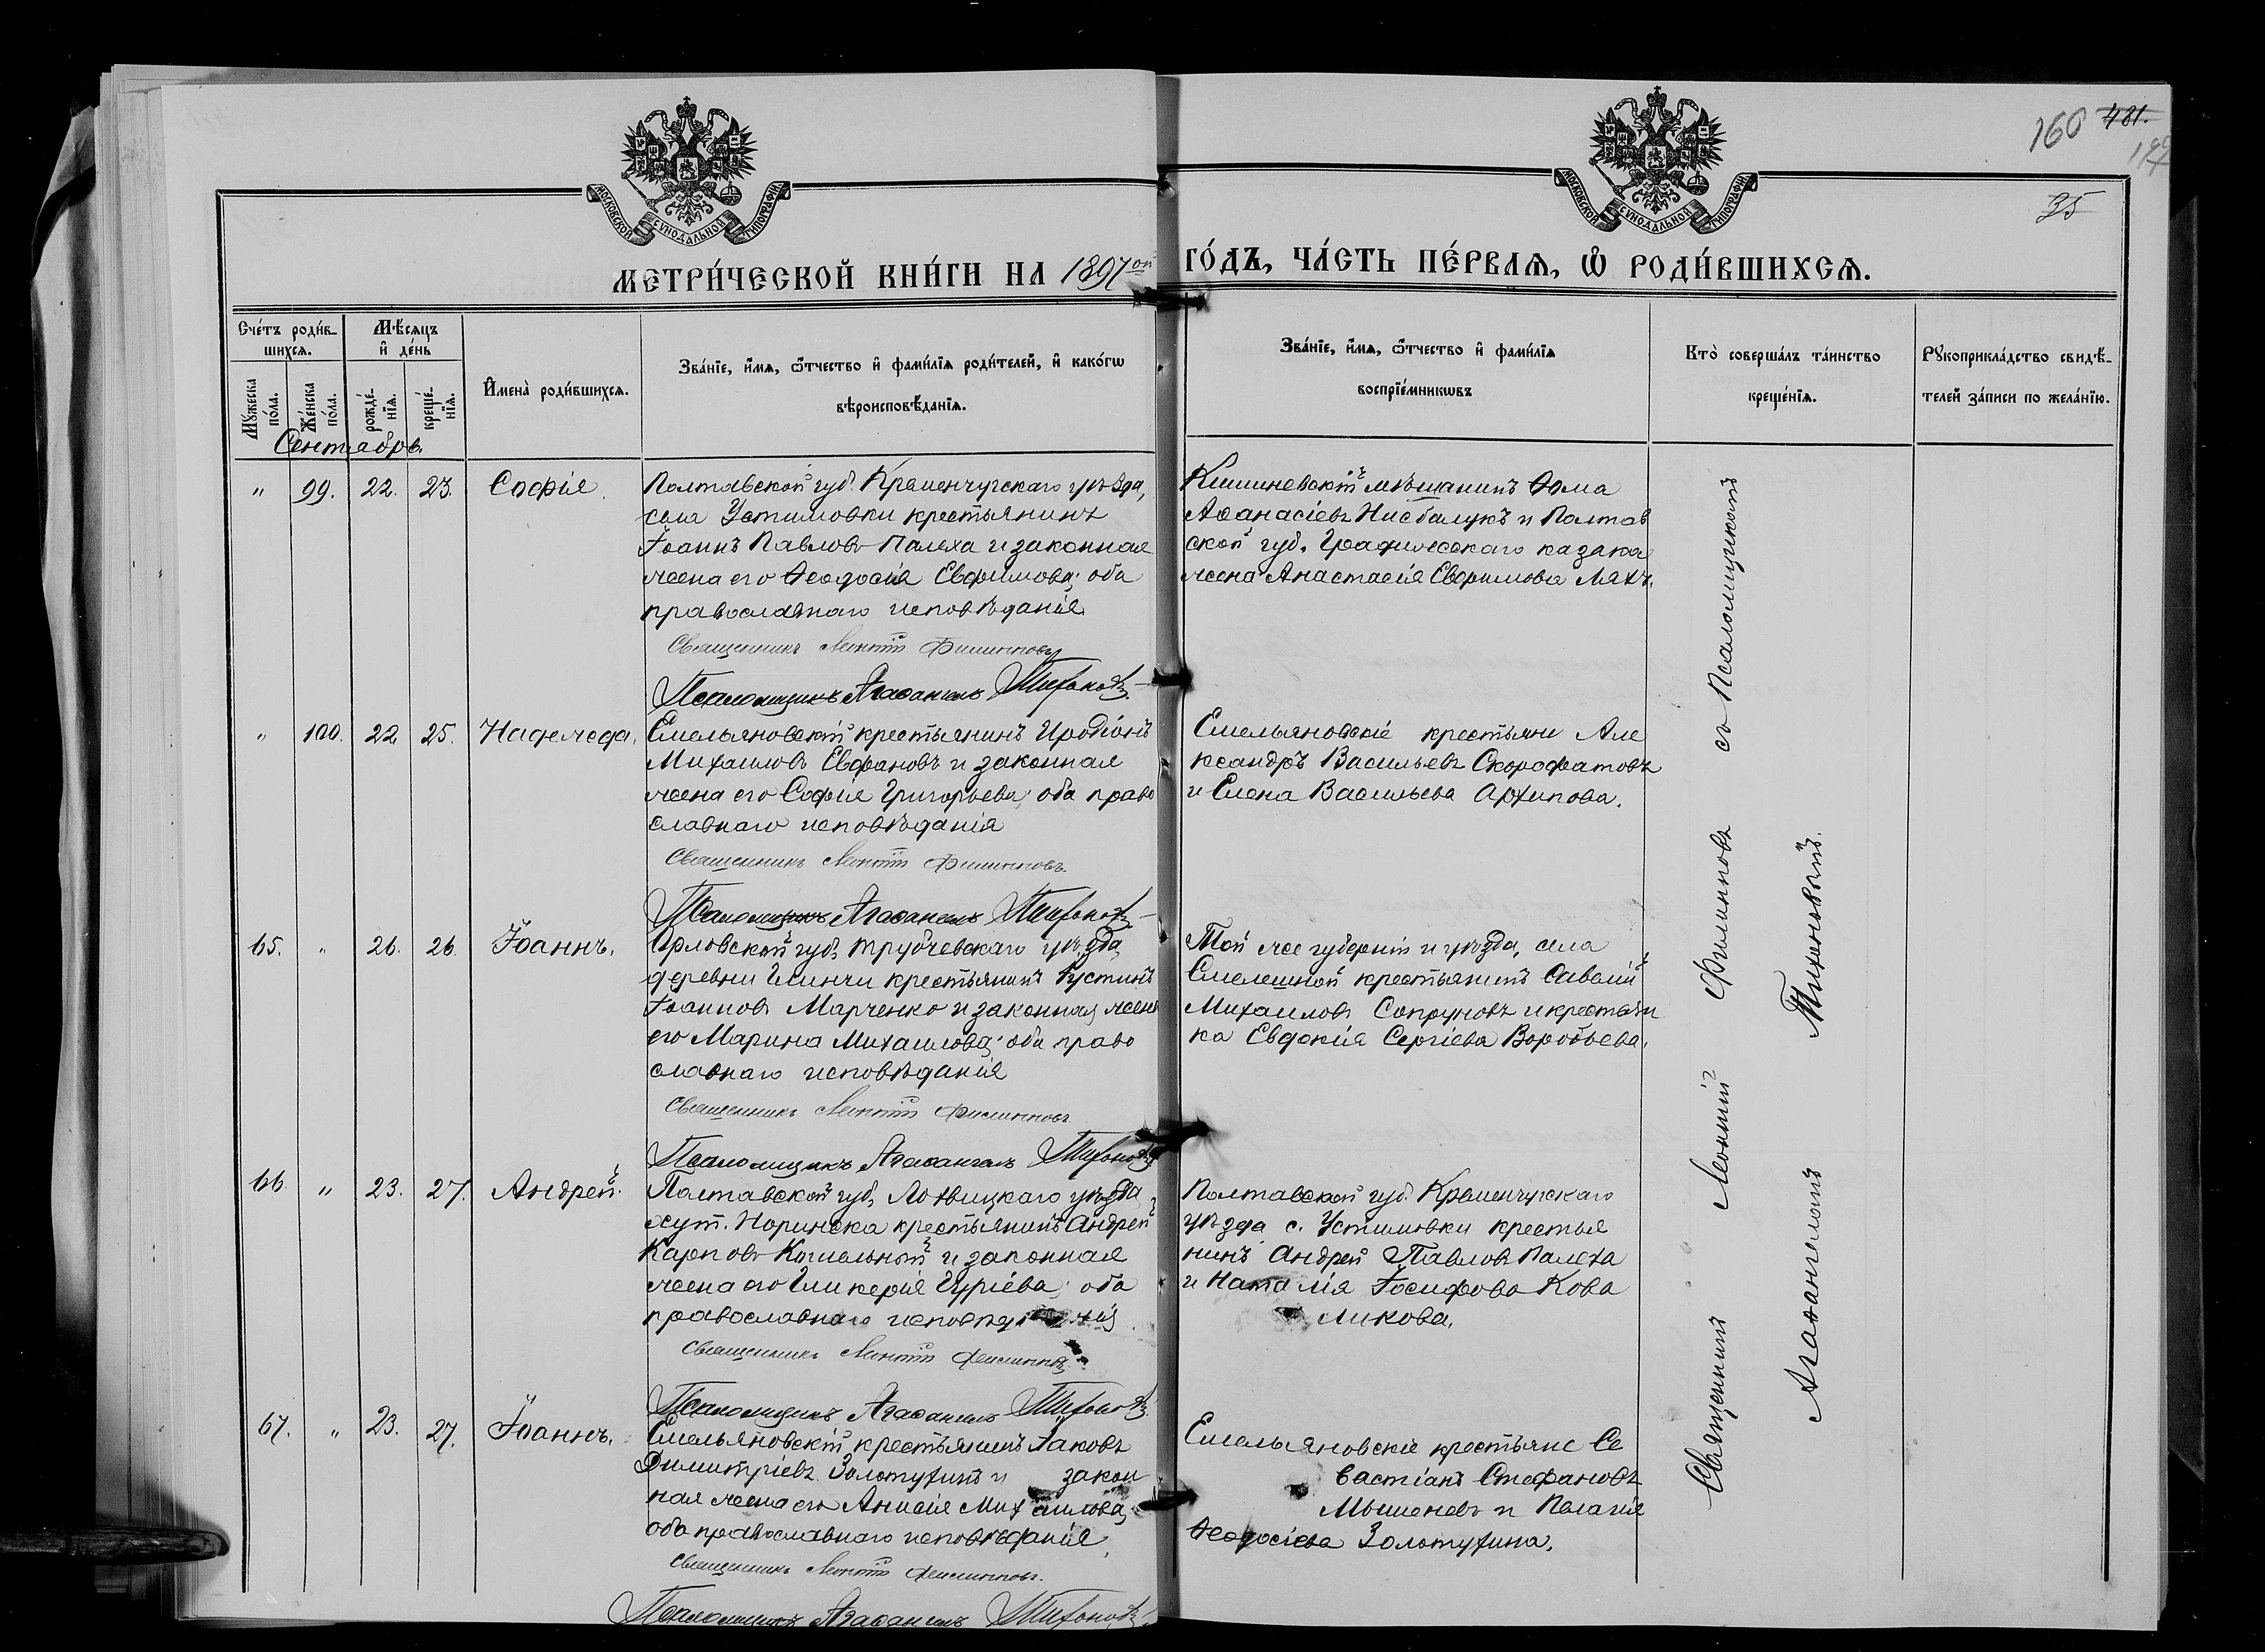 160 481.
35
МОСКОВСКОЙ СУНОДАЛЬНОЙ ТИПОГРАФІИ
МОСКОВСКОЙ СУНОДАЛЬНОЙ ТИПОГРАФІИ
МЕТРИ́ЧЕСКОЙ КНИ́ГИ НА 1897ой ГО́ДЪ, ЧА́СТЬ ПЕ́РВАѦ, Ѽ РОДИ́ВШИХСѦ.
Сче́тъ роди́в-
шихсѧ.
Мꙋ́жеска по́ла.
Же́нска по́ла.
Мѣ́сѧцъ
и҆ де́нь
рожде́-нїѧ.
креще́-нїѧ.
И҆мена̀ роди́вшихсѧ.
Зва́нїе, и҆́мѧ, ѻ҆́тчество и҆ фами́лїѧ роди́телей, и҆ како́гѡ
вѣроисповѣ́данїѧ.
Зва́нїе, и҆́мѧ, ѻ҆́тчество и҆ фами́лїѧ
воспрїе́мникѡвъ
Кто̀ соверша́лъ та́инство
креще́нїѧ.
Рꙋкоприкла́дство свидѣ́-
телей за́писи по жела́нїю.
Сентябрь
" 99. 22. 23. Софія.
Полтавской губ. Кременчугскаго уѣзда,
села Устимовки крестьянинъ
Іоаннъ Павловъ Палеха и законная
жена его Ѳеодосія Евфимова; оба
православнаго исповѣданія
Священникъ Леонтій Филипповъ
Псаломщикъ Агаѳангелъ Тихоновъ
Кишиневскій мѣщанинъ Ѳома
Аѳанасіевъ и Полтав
ской губ. казака
жена Анастасія Евфимова Ляхъ.
" 100. 22 25. Надежда.
Емельяновскій крестьянинъ Иродіонъ
Михаиловъ Евфановъ и законная
жена его Софія Григорьева; оба право
славнаго исповѣданія
Священникъ Леонтій Филипповъ.
Псаломщикъ Агаѳангелъ Тихоновъ
Емельяновскіе крестьяне Але
ксандръ Васильевъ Скорофатовъ
и Елена Васильева Архипова.
65. " 26. 26. Іоаннъ.
Орловской губ. Трубчевскаго уѣзда
деревни крестьянинъ Іустинъ
Іоанновъ Марченко и законная жена
его Марина Михаилова; оба право
славнаго исповѣданія
Священникъ Леонтій Филипповъ
Псаломщикъ Агаѳангелъ Тихоновъ
Той же губерніи и уѣзда, села
крестьянинъ Савелій
Михаиловъ Сопруновъ и крестьян
ка Евдокія Сергіева Воробьева.
66. " 23. 27. Андрей.
Полтавской губ. Лохвицкаго уѣзда
хут. крестьянинъ Андрей
Карповъ и законная
жена его Гликерія Гуріева; оба
православнаго исповѣданія
Священникъ Леонтій Филипповъ
Псаломщикъ Агаѳангелъ Тихоновъ
Полтавской губ. Кременчугскаго
уѣзда с. Устимовки крестья
нинъ Андрей Павловъ Палеха
и Наталія Іосифова Кова
ликова.
67. " 23. 27. Іоаннъ.
Емельяновскій крестьянинъ Іаковъ
Димитріевъ Золотухинъ и закон
ная жена его Анисія Михаилова;
оба православнаго исповѣданія,
Священникъ Леонтій Филипповъ.
Псаломщикъ Агаѳангелъ Тихоновъ
Емельяновскіе крестьяне Се
вастіанъ Стефановъ
Мышеневъ и Пелагія
Ѳеодосіева Золотухина.
Священникъ Леонтій Филипповъ съ Псаломщикомъ
Агаѳангеломъ Тихоновымъ.